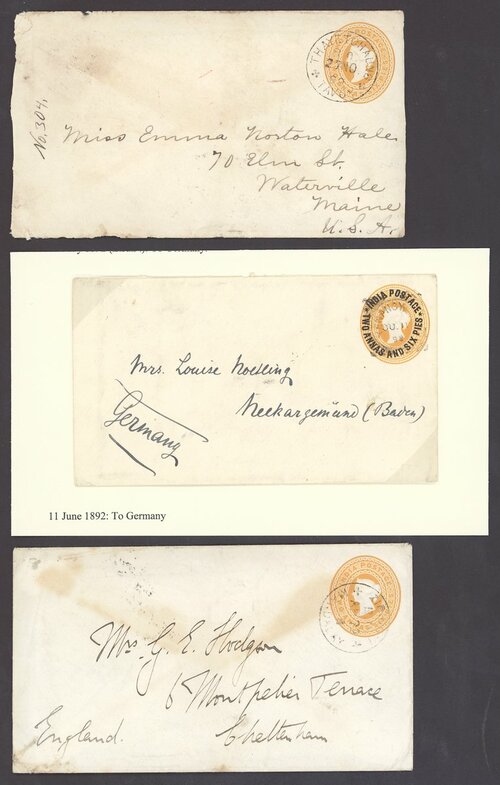 No. 304.
Miss Emma Norton Hale
70 Elm St.
Waterville
Maine
U.S.A.
INDIA POSTAGE
TWO ANNAS AND SIX PIES
Mrs. Louise Noetling
Neckargemünd (Baden)
Germany
11 June 1892: To Germany
INDIA POSTAGE
Mrs G. E. Hodgson
6 Montpelier Terrace
Cheltenham
England.